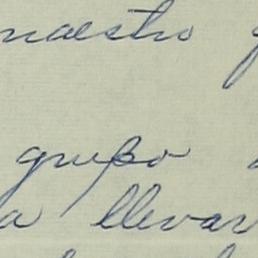 maestro
grupo
a llevar